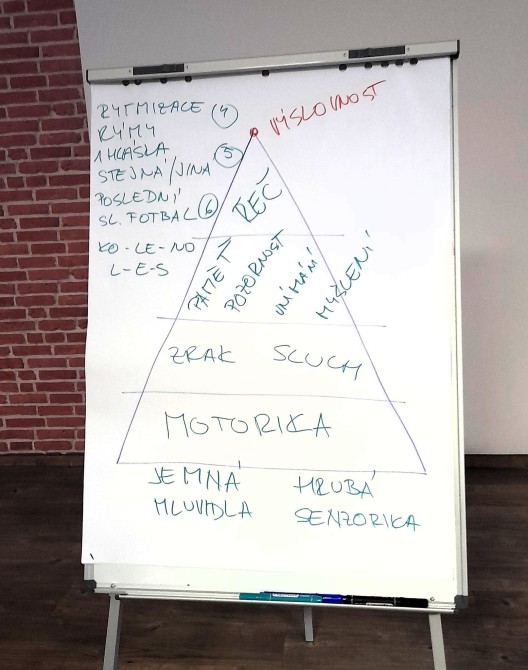 RYTMIZACE (4)
RÝMY
1 HLÁSKA (5)
STEJNÁ/JINÁ
POSLEDNÍ (6)
SL. FOTBAL
KO-LE-NO
L-E-S
VÝSLOVNOST
ŘEČ
PAMĚŤ POZORNOST VNÍMÁNÍ MYŠLENÍ
ZRAK SLUCH
MOTORIKA
JEMNÁ HRUBÁ
MLUVIDLA SENZORIKA